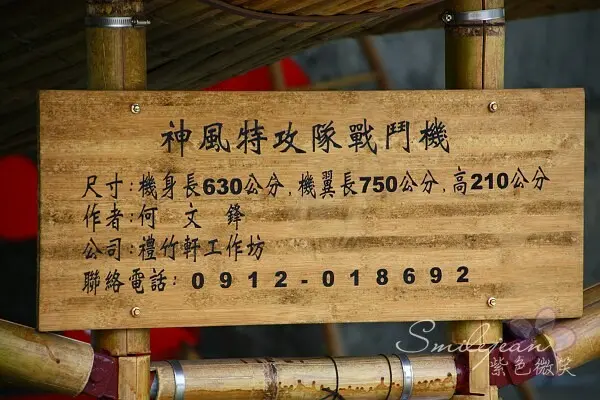 神風特攻隊戰鬥機
尺寸:機身長630公分,機翼長750公分,高210公分
作者:何 文 鋒
公司:禮竹軒工作坊
聯絡電話: 0912-018692
Smilejean
紫色微笑